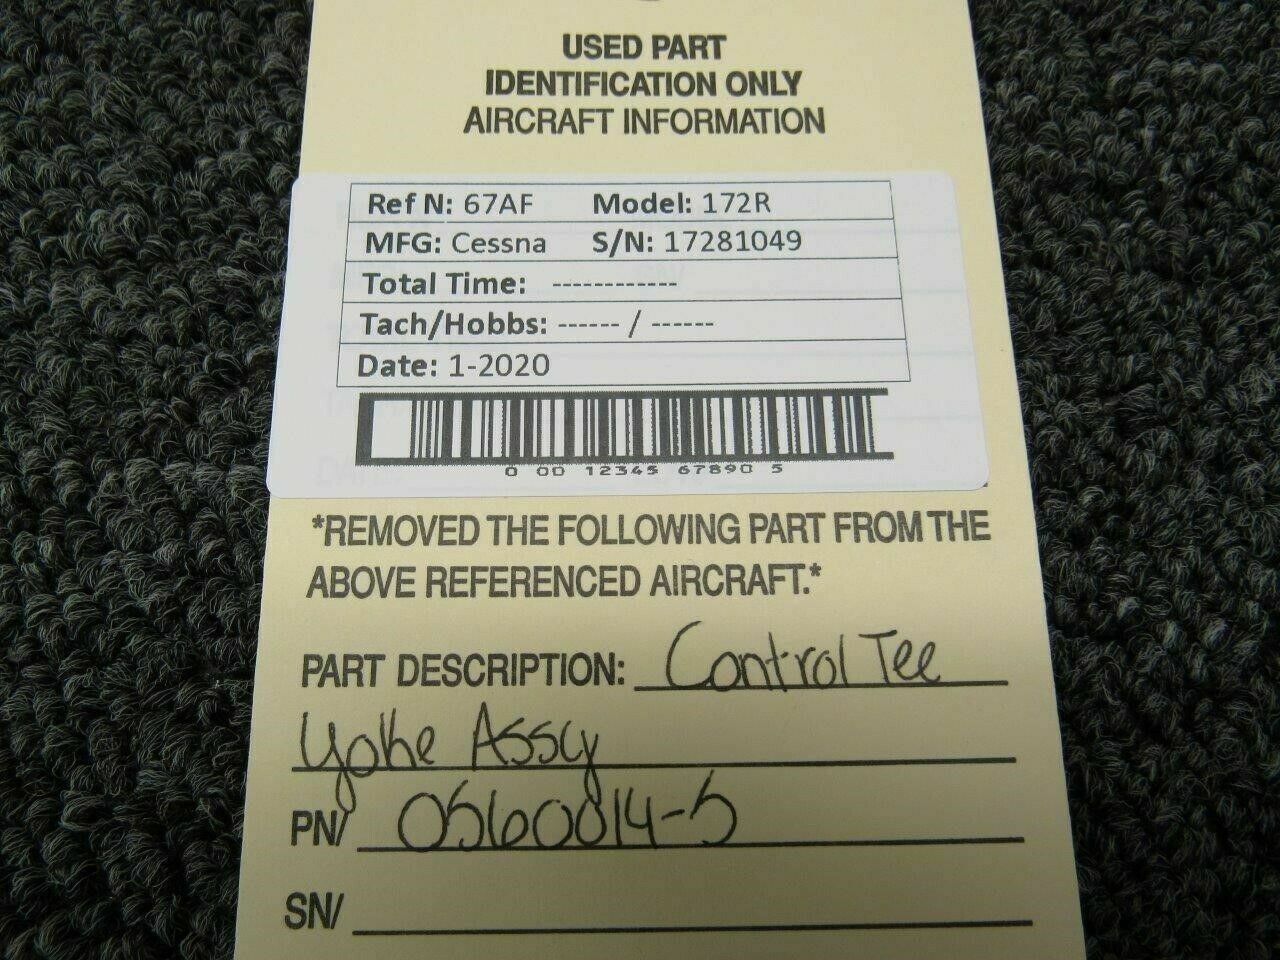 USED PART
IDENTIFICATION ONLY
AIRCRAFT INFORMATION
Ref N: 67AF Model: 172R
MFG: Cessna S/N: 17281049
Total Time: ------------
Tach/Hobbs: ------ / ------
Date: 1-2020
0 00 12345 67890 5
*REMOVED THE FOLLOWING PART FROM THE
ABOVE REFERENCED AIRCRAFT.*
PART DESCRIPTION: Control Tee
Yoke Assy
PN/ 0560014-5
SN/